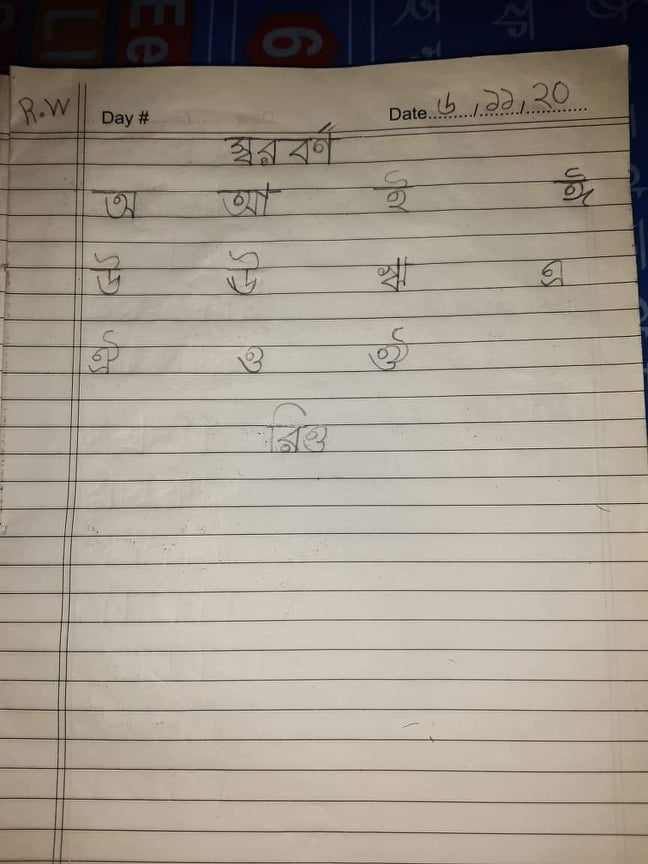 Ee
LI
6
R.W
Day #
Date ৬/১১/২০
স্বরবর্ণ
অ আ ই ঈ
উ ঊ ঋ এ
ঐ ও ঔ
রিও